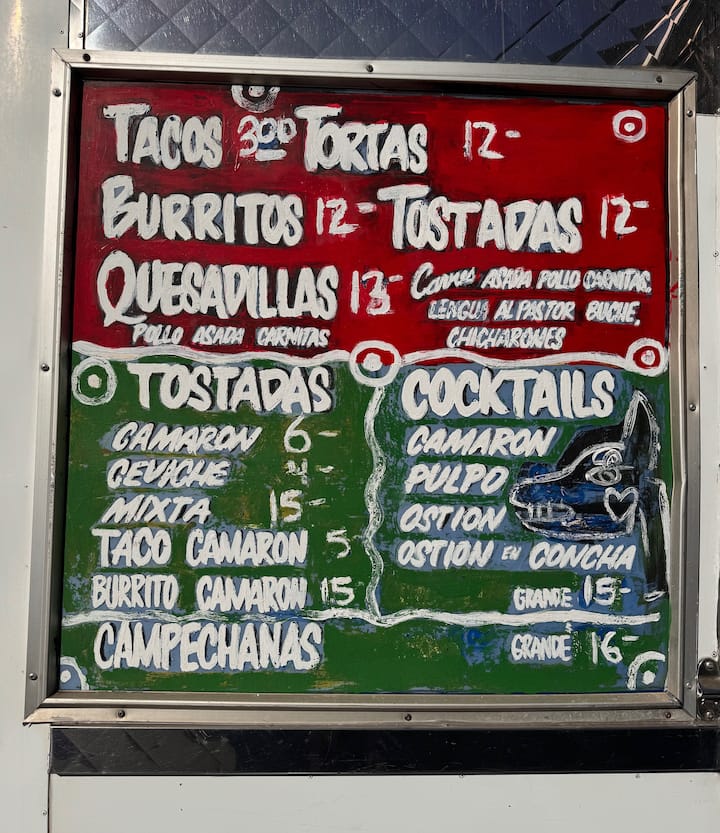 TACOS 3.00 TORTAS 12-
BURRITOS 12- TOSTADAS 12-
QUESADILLAS 13-
POLLO ASADA CARNITAS
Carnes ASADA POLLO CARNITAS.
LENGUA AL PASTOR BUCHE.
CHICHARONES
TOSTADAS
CAMARON 6-
CEVICHE 4-
MIXTA 15-
TACO CAMARON 5
BURRITO CAMARON 15
COCKTAILS
CAMARON
PULPO
OSTION
OSTION EN CONCHA
GRANDE 15-
CAMPECHANAS GRANDE 16-